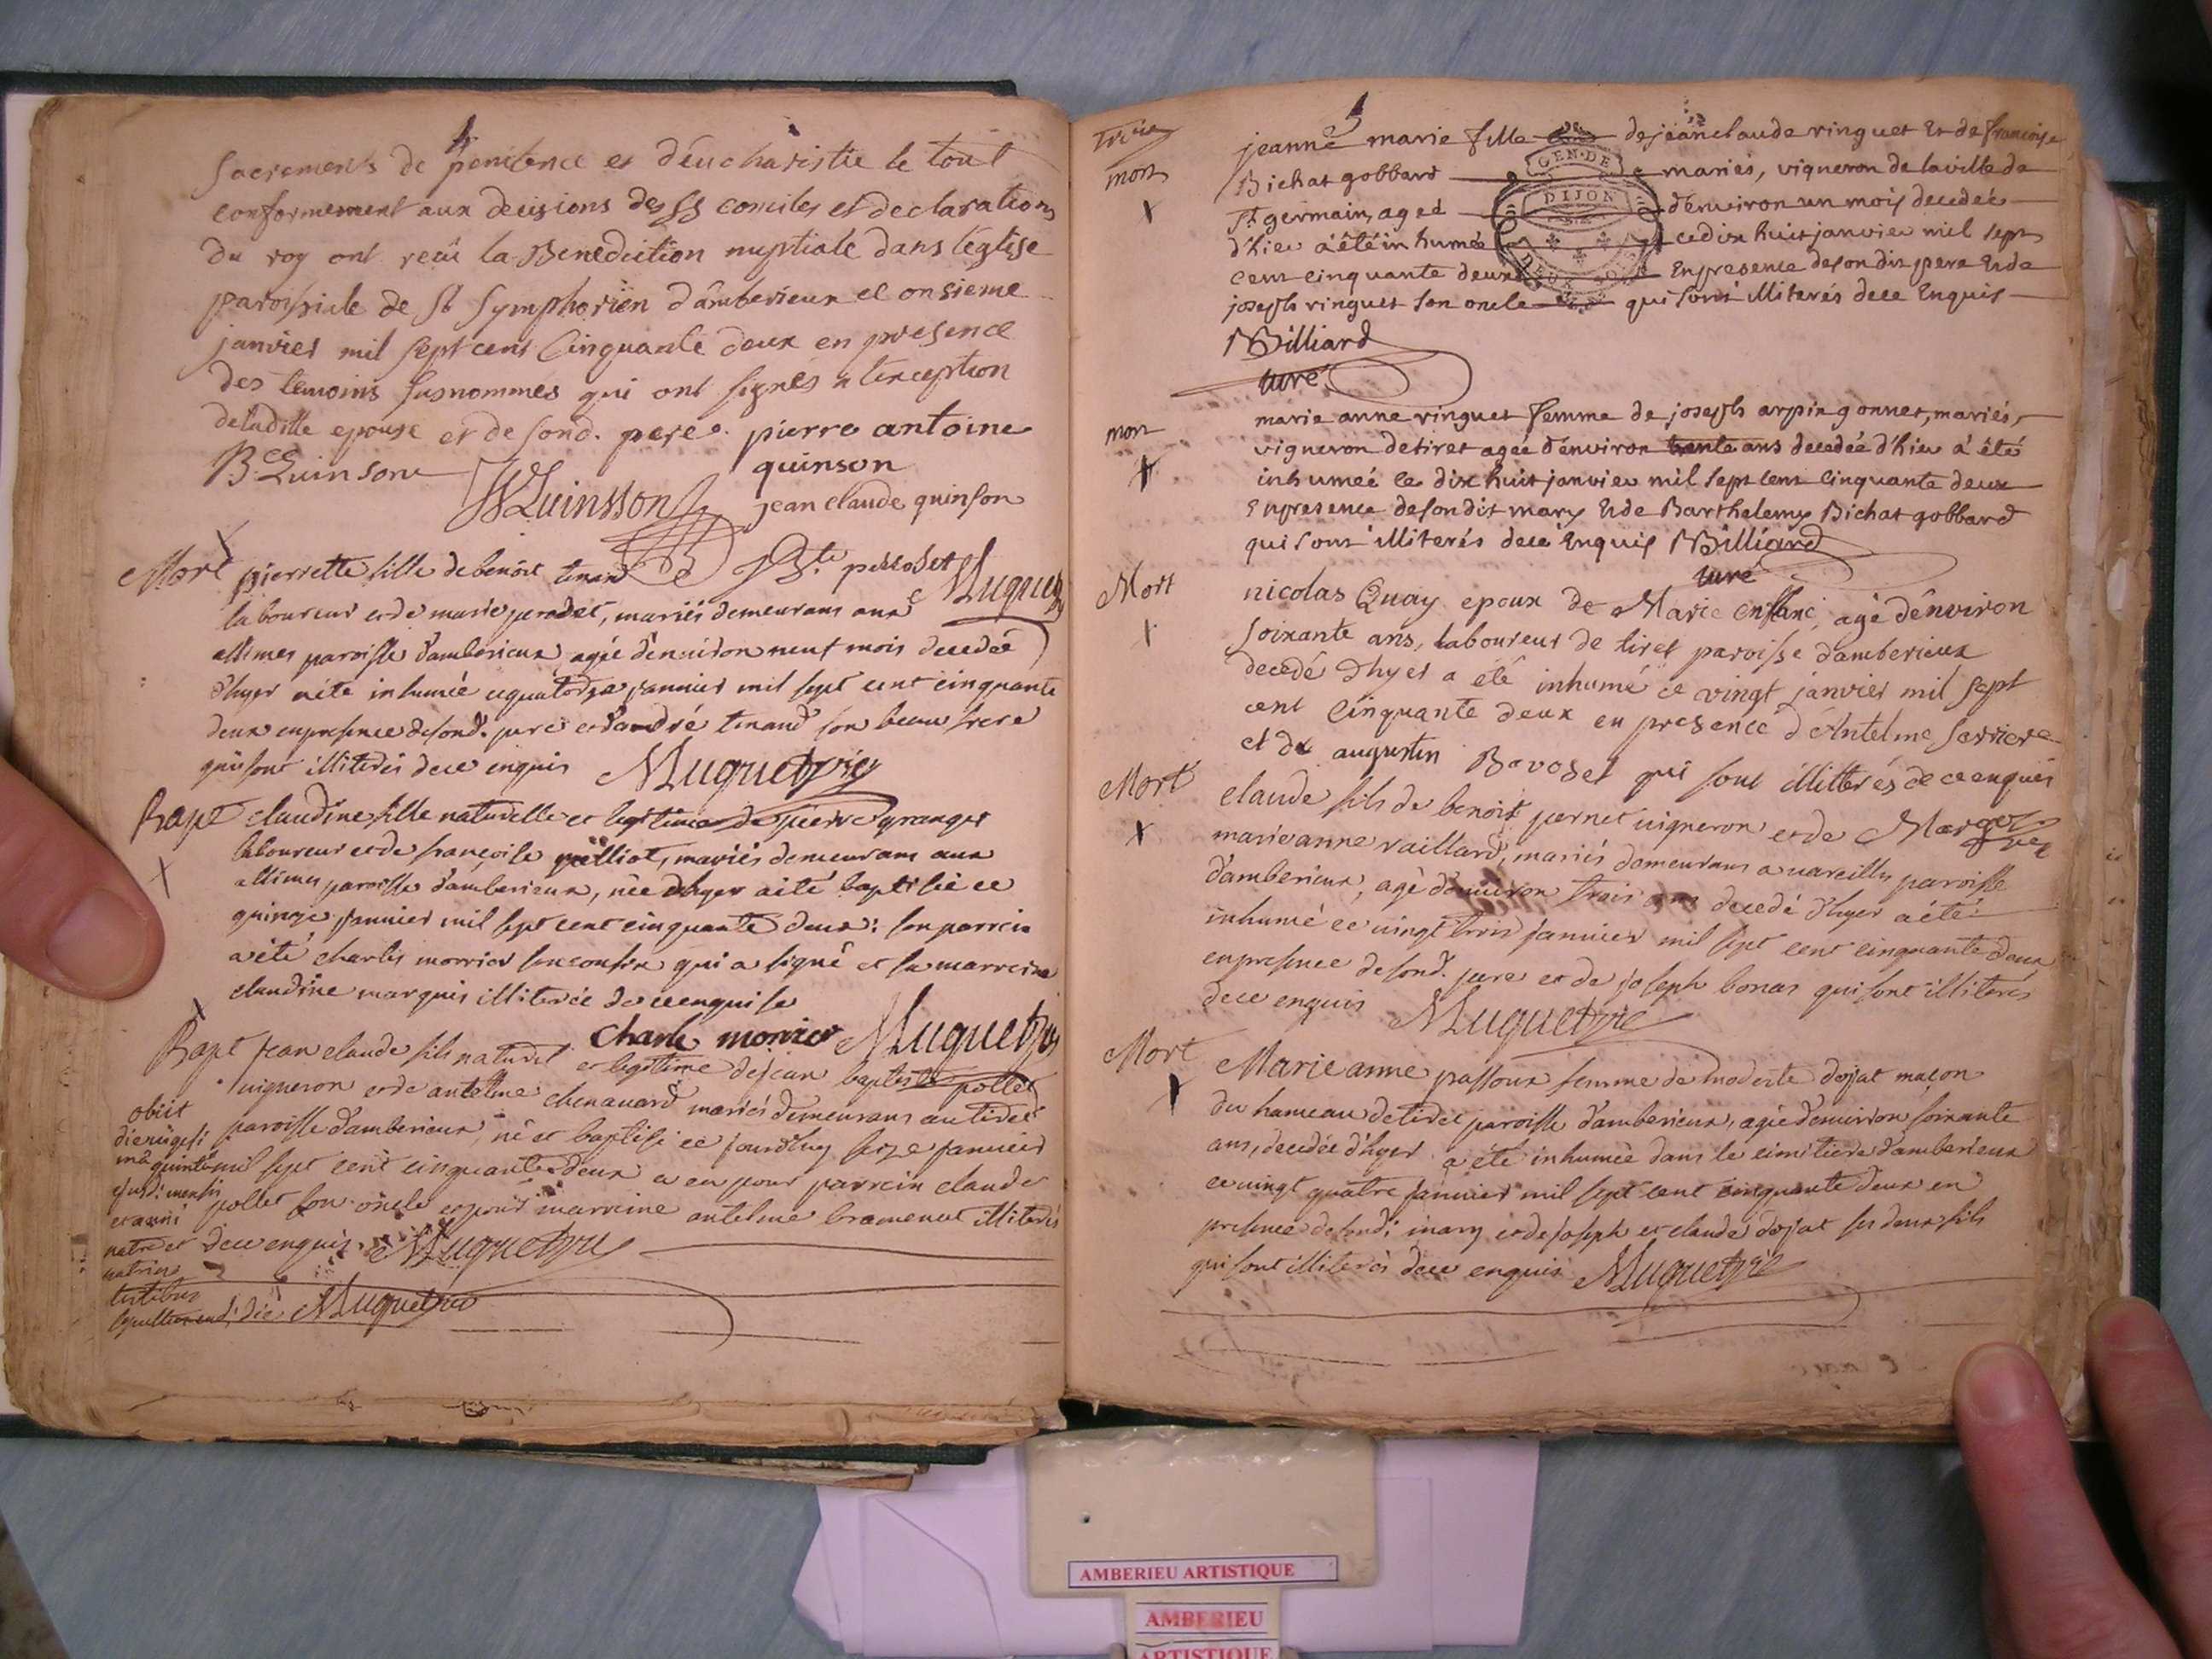 sacrements de penitence et d'eucharistie le tout
conformement aux decisions des SS conciles et declarations
du roy ont reçû la Benediction nuptiale dans l'eglise
paroissiale de St Symphorien d'amberieux ce onsieme
janvier mil sept cent Cinquante deux en presence
des temoins susnommés qui ont signés a l'exception
de laditte epouse et de sond. pere. pierre antoine
quinson
jean claude quinson
Mort
pierrette fille de benoit tenand
laboureur et de marie perodet, mariés demeurans aux
allimes paroisse d'amberieux agée d'environ neuf mois decedée
d'hyer a été inhumée ce quatorze janvier mil sept cent cinquante
deux en presence de sond. pere et d'andré tenand son beau frere
qui sont illiterés de ce enquis
Bapt
claudine fille naturelle et legitime de pierre granger
laboureur et de françoise mariés demeurans aux
allimes paroisse d'amberieux, née d'hyer a été baptisée ce
quinze janvier mil sept cent cinquante deux: son parrein
a été charles morrier son cousin qui a signé et sa marreine
claudine marquis illiterée de ce enquise
Charle morrier
Bapt
jean claude fils naturel et legitime de jean baptiste pollet
vigneron et de antelme chenavard mariés demeurans au tiret
paroisse d'amberieux, né et baptisé ce jourd'huy seize janvier
mil sept cent cinquante deux a eu pour parrein claude
pollet son oncle et pour marreine antelme bramenet illiterés
de ce enquis
obiit
die vigesi
mâ quintâ
ejusd: mensis
et anni
patre et
patrino
testibus
sepultus eâd: die
mort
jeanne marie fille de jean claude vinguet Et de francoise
Bichat gobbard mariés, vigneron de la ville de
St germain, aged d'environ un mois decedeé
d'hier a été inhumée ce dix huit janvier mil sept
cent cinquante deux En presence de son dit pere Et de
joseph vinguet son oncle qui sont illiterés de ce Enquis
GEN. DE
DIJON
Billiard
curé
mort
marie anne vinguet femme de joseph arpin gonnet, mariés,
vigneron de tiret ageé d'environ trente ans decedeé d'hier a été
inhumeé ce dix huit janvier mil sept cent Cinquante deux
En presence de son dit mary Et de Barthelemy Bichat gobbard
qui sont illiterés de ce Enquis Billiard
curé
Mort
nicolas Quay epoux de Marie enflanc, agé d'environ
soixante ans, laboureur de tiret paroisse d'amberieux
decedé d'hyer a été inhumé ce vingt janvier mil sept
cent Cinquante deux en presence d'Antelme serriere
et de augustin Bovoset qui sont illitterés de ce enquis
Mort
claude fils de benoit pernet vigneron et de
marie anne vaillard, mariés demeurans a vareilles paroisse
d'amberieux, agé d'environ trois ans decedé d'hyer a été
inhumé ce vingt trois janvier mil sept cent cinquante deux
en presence de sond. pere et de joseph bonas qui sont illiterés
de ce enquis
Mort
Marie anne passoux femme de modeste dojat maçon
du hameau de tiret paroisse d'amberieux, agée d'environ soixante
ans, decedée d'hyer a été inhumée dans le cimitiere d'amberieux
ce vingt quatre janvier mil sept cent cinquante deux en
presence de sond: mary et de joseph et claude dojat ses deux fils
qui sont illiterés de ce enquis
AMBERIEU ARTISTIQUE
AMBERIEU
ARTISTIQUE